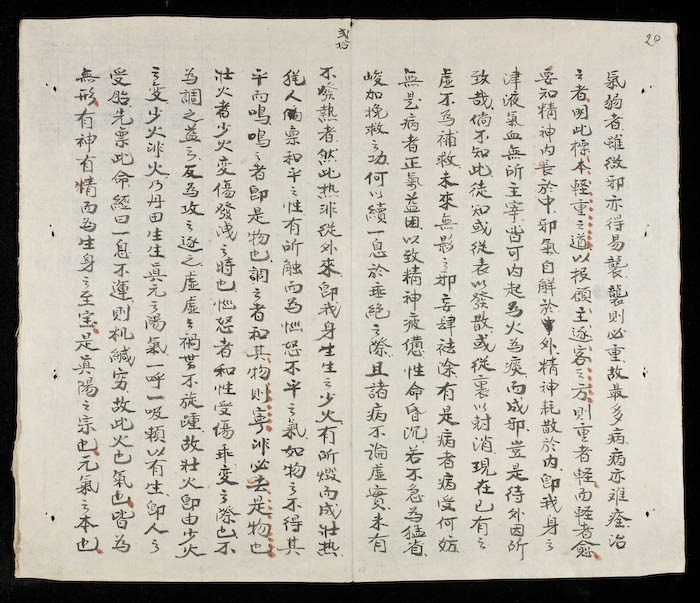 20
氣弱者雖微邪亦得易襲襲則必重故最多病病亦难痊治
之者因此標本軽重之道以报顧主逐客之方則重者軽而軽者愈
要知精神内長於中邪氣自解於外精神耗散於内即我身之
津液氣血無所主宰皆可内起為火為痰而成邪豈是待外因所
致哉倘不知此徒知或從表以發散或從裏以封消現在已有之
虚不為補救未來無影之邪妄肆祛除有是病者病受何妨
無是病者正氣益困以致精神疲憊性命昏沉若不急為猛省
峻加挽救之功何以續一息於垂絶之際且諸病不論虚實未有
弍拾
不發熱者然此热非從外來即我身生生之少火有所燬而成壮热
猶人偏禀和平之性有所触而為忿怒不平之氣如物之不得其
平而鳴鳴之者即是物也調之者和其物則寧非必去是物也
壮火者少火変傷發洩之時也忿怒者和性受傷乖変之際也不
為調之益之反為攻之逐之虚虚之禍世不旋踵故壮火即由少火
之変少火非火乃丹田生生真元之陽氣一呼一吸頼以有生即人之
受胎先禀此命經曰一息不運則机緘穷故此火也氣也皆為
無形有神有情而為生身之至宝是真陽之宗也元氣之本也